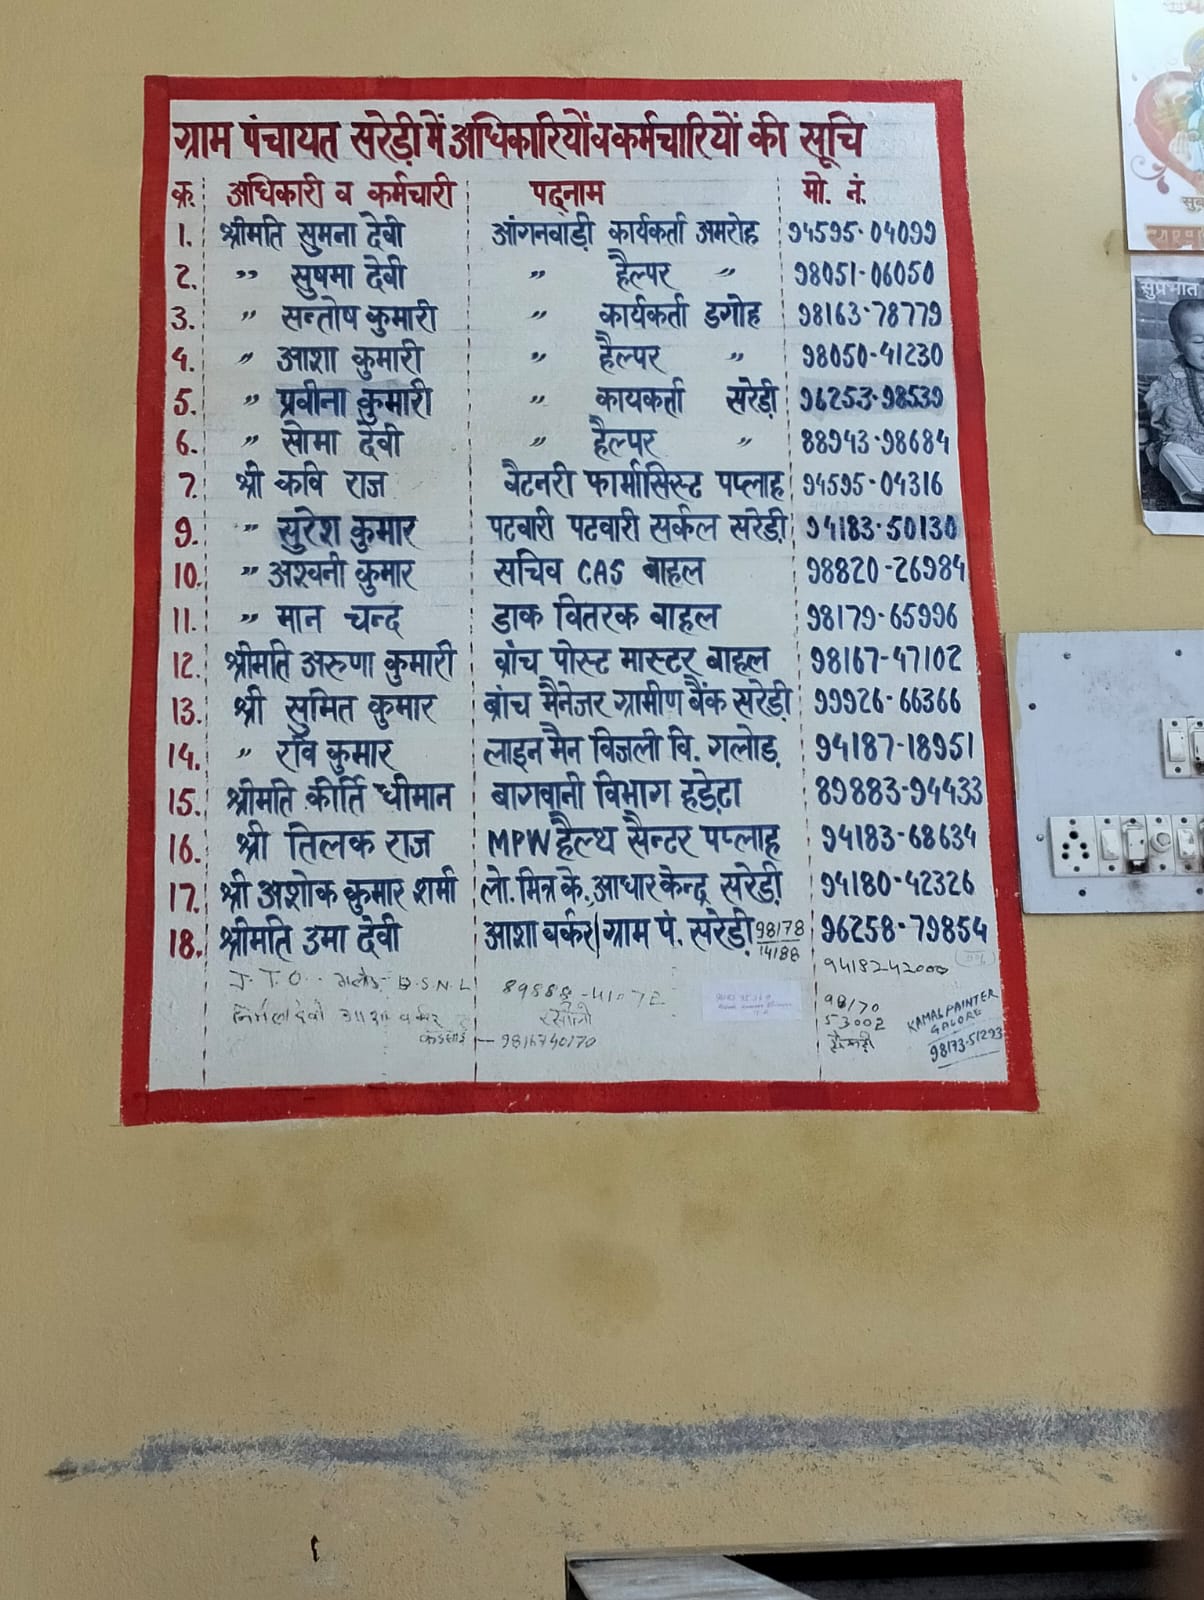 ग्राम पंचायत सरेड़ी में अधिकारियों व कर्मचारियों की सूचि
क्र. अधिकारी व कर्मचारी पद्नाम मो. नं.
1. श्रीमति सुमना देवी आंगनवाड़ी कार्यकर्ता अमरोह 94595-04099
2. ,, सुषमा देवी ,, हैल्पर ,, 98051-06050
3. ,, सन्तोष कुमारी ,, कार्यकर्ता डगोह 98163-78779
4. ,, आशा कुमारी ,, हैल्पर ,, 98050-41230
5. ,, प्रवीना कुमारी ,, कायकर्ता सरेड़ी 96253-98539
6. ,, सोमा देवी ,, हैल्पर ,, 88943-98684
7. श्री कवि राज वैटनरी फार्मासिस्ट पप्लाह 94595-04316
9. ,, सुरेश कुमार पटवारी पटवारी सर्कल सरेड़ी 94183-50130
10. ,, अश्वनी कुमार सचिव CAS बाहल 98820-26984
11. ,, मान चन्द डाक वितरक बाहल 98179-65996
12. श्रीमति अरुणा कुमारी ब्रांच पोस्ट मास्टर बाहल 98167-47102
13. श्री सुमित कुमार ब्रांच मैनेजर ग्रामीण बैंक सरेड़ी 99926-66366
14. ,, रवि कुमार लाइन मैन विजली वि. गलोड़ 94187-18951
15. श्रीमति कीर्ति धीमान बागवानी विभाग हड़ेटा 89883-94433
16. श्री तिलक राज MPW हैल्थ सैन्टर पप्लाह 94183-68634
17. श्री अशोक कुमार शर्मा लो. मित्र के. आधार केन्द्र सरेड़ी 94180-42326
18. श्रीमति उमा देवी आशा वर्कर ग्राम पं. सरेड़ी 98178 14188 96258-79854
J.T.O. गलोड़ B.S.N.L 9418242000
निर्मला देवी आशा वर्कर 9816740170
98170
53002
KAMAL PAINTER
GALORE
98173-51293
सुप्रभात